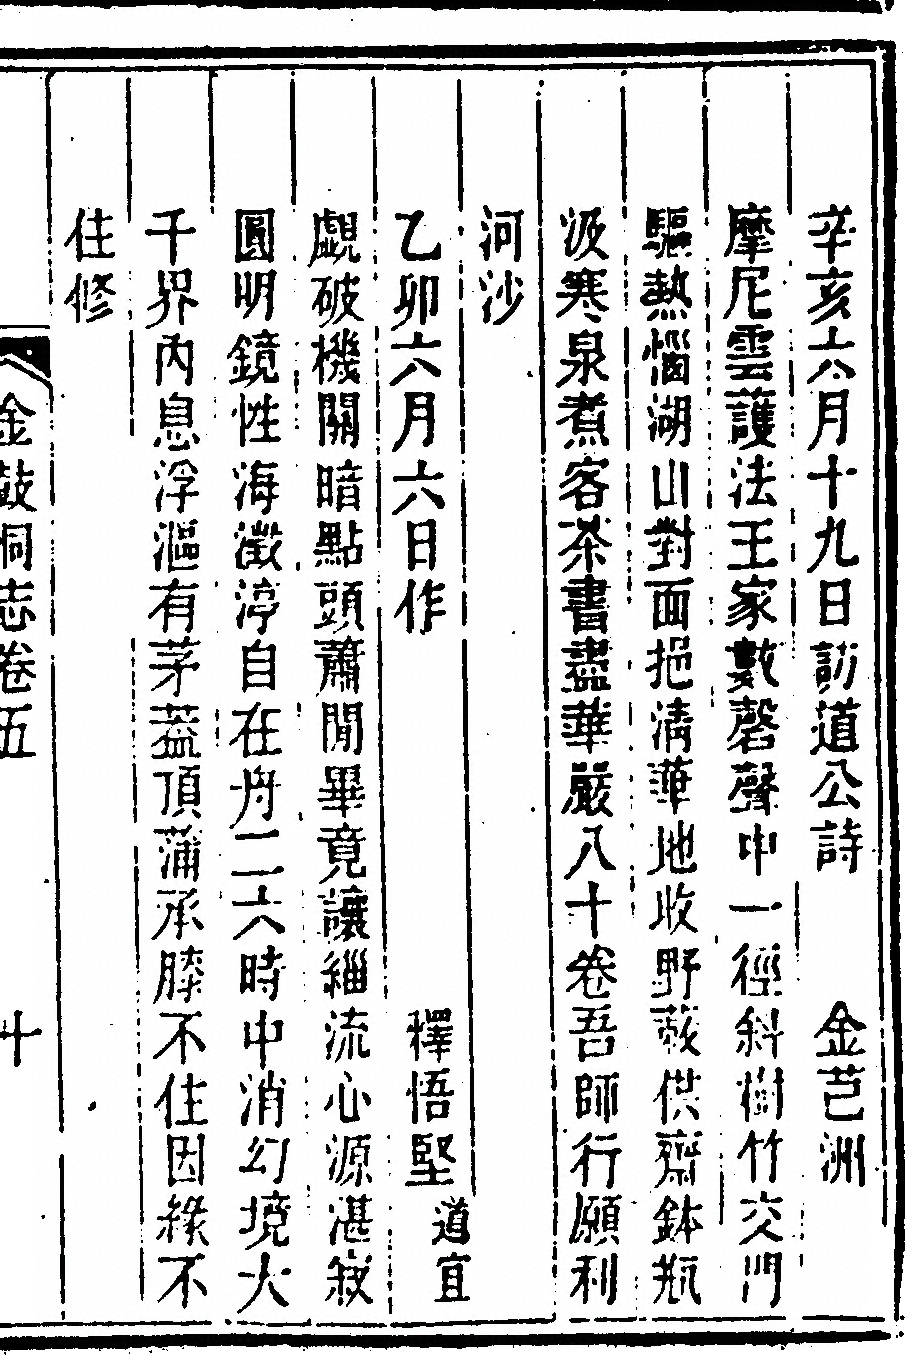 辛亥六月十九日訪道公詩　金芑洲
摩尼雲護法王家數磬聲中一徑斜樹竹交門
驅熱惱湖山對面挹清華地收野蔌供齋鉢瓶
汲寒泉煮客茶書盡華嚴八十卷吾師行願利
河沙
乙卯六月六日作　釋悟堅道宜
覷破機關暗點頭蕭閒畢竟讓緇流心源湛寂
圓明鏡性海澂渟自在舟二六時中消幻境大
千界內息浮漚有茅葢頂蒲承膝不住因緣不
住修
金鼓洞志卷五
十